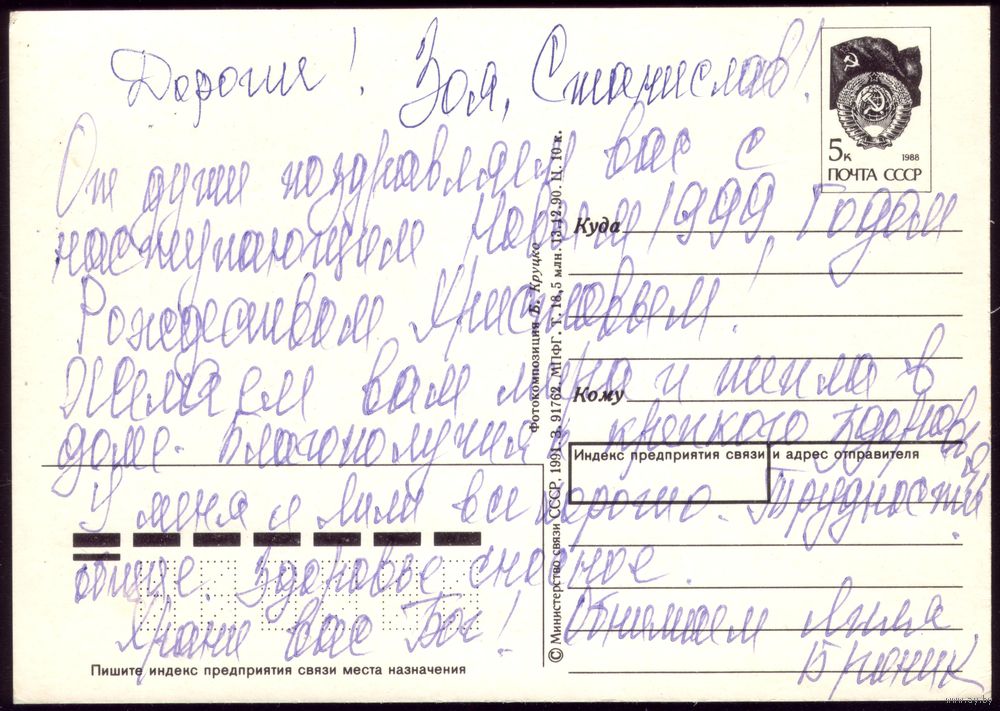 Дорогие! Зоя, Станислав!
5к 1988
ПОЧТА СССР
От души поздравляем вас с
наступающим Новым 1999 Годом
Куда
Рождеством Христовым!
Желаем вам мира и тепла в
Кому
доме. Благополучия и крепкого здоровья.
Индекс предприятия связи и адрес отправителя
У меня и Лили все хорошо. Трудности
общие. Здоровье сносное.
Храни вас Бог! Обнимаем Лиля
Пишите индекс предприятия связи места назначения
Фотокомпозиция Б. Круцко
© Министерство связи СССР, 1991. З. 91762. МПФГ. Т. 18,5 млн. 13.12.90. Ц. 10 к.